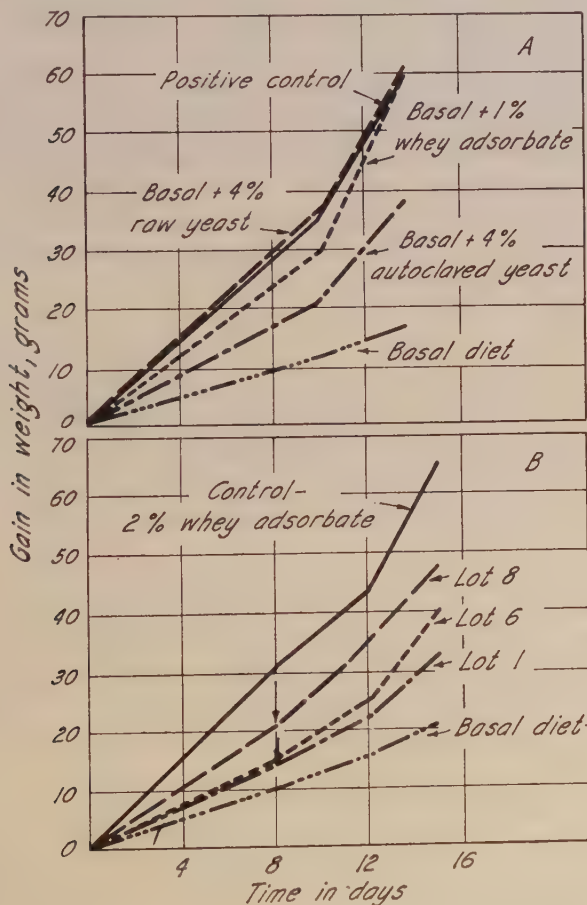 70
60
50
40
30
20
10
0
A
Positive control
Basal + 1%
whey adsorbate
Basal + 4%
raw yeast
Basal + 4%
autoclaved yeast
Basal diet
Gain in weight, grams
70
60
50
40
30
20
10
0
B
Control-
2% whey adsorbate
Lot 8
Lot 6
Lot 1
Basal diet-
4
8
12
16
Time in days